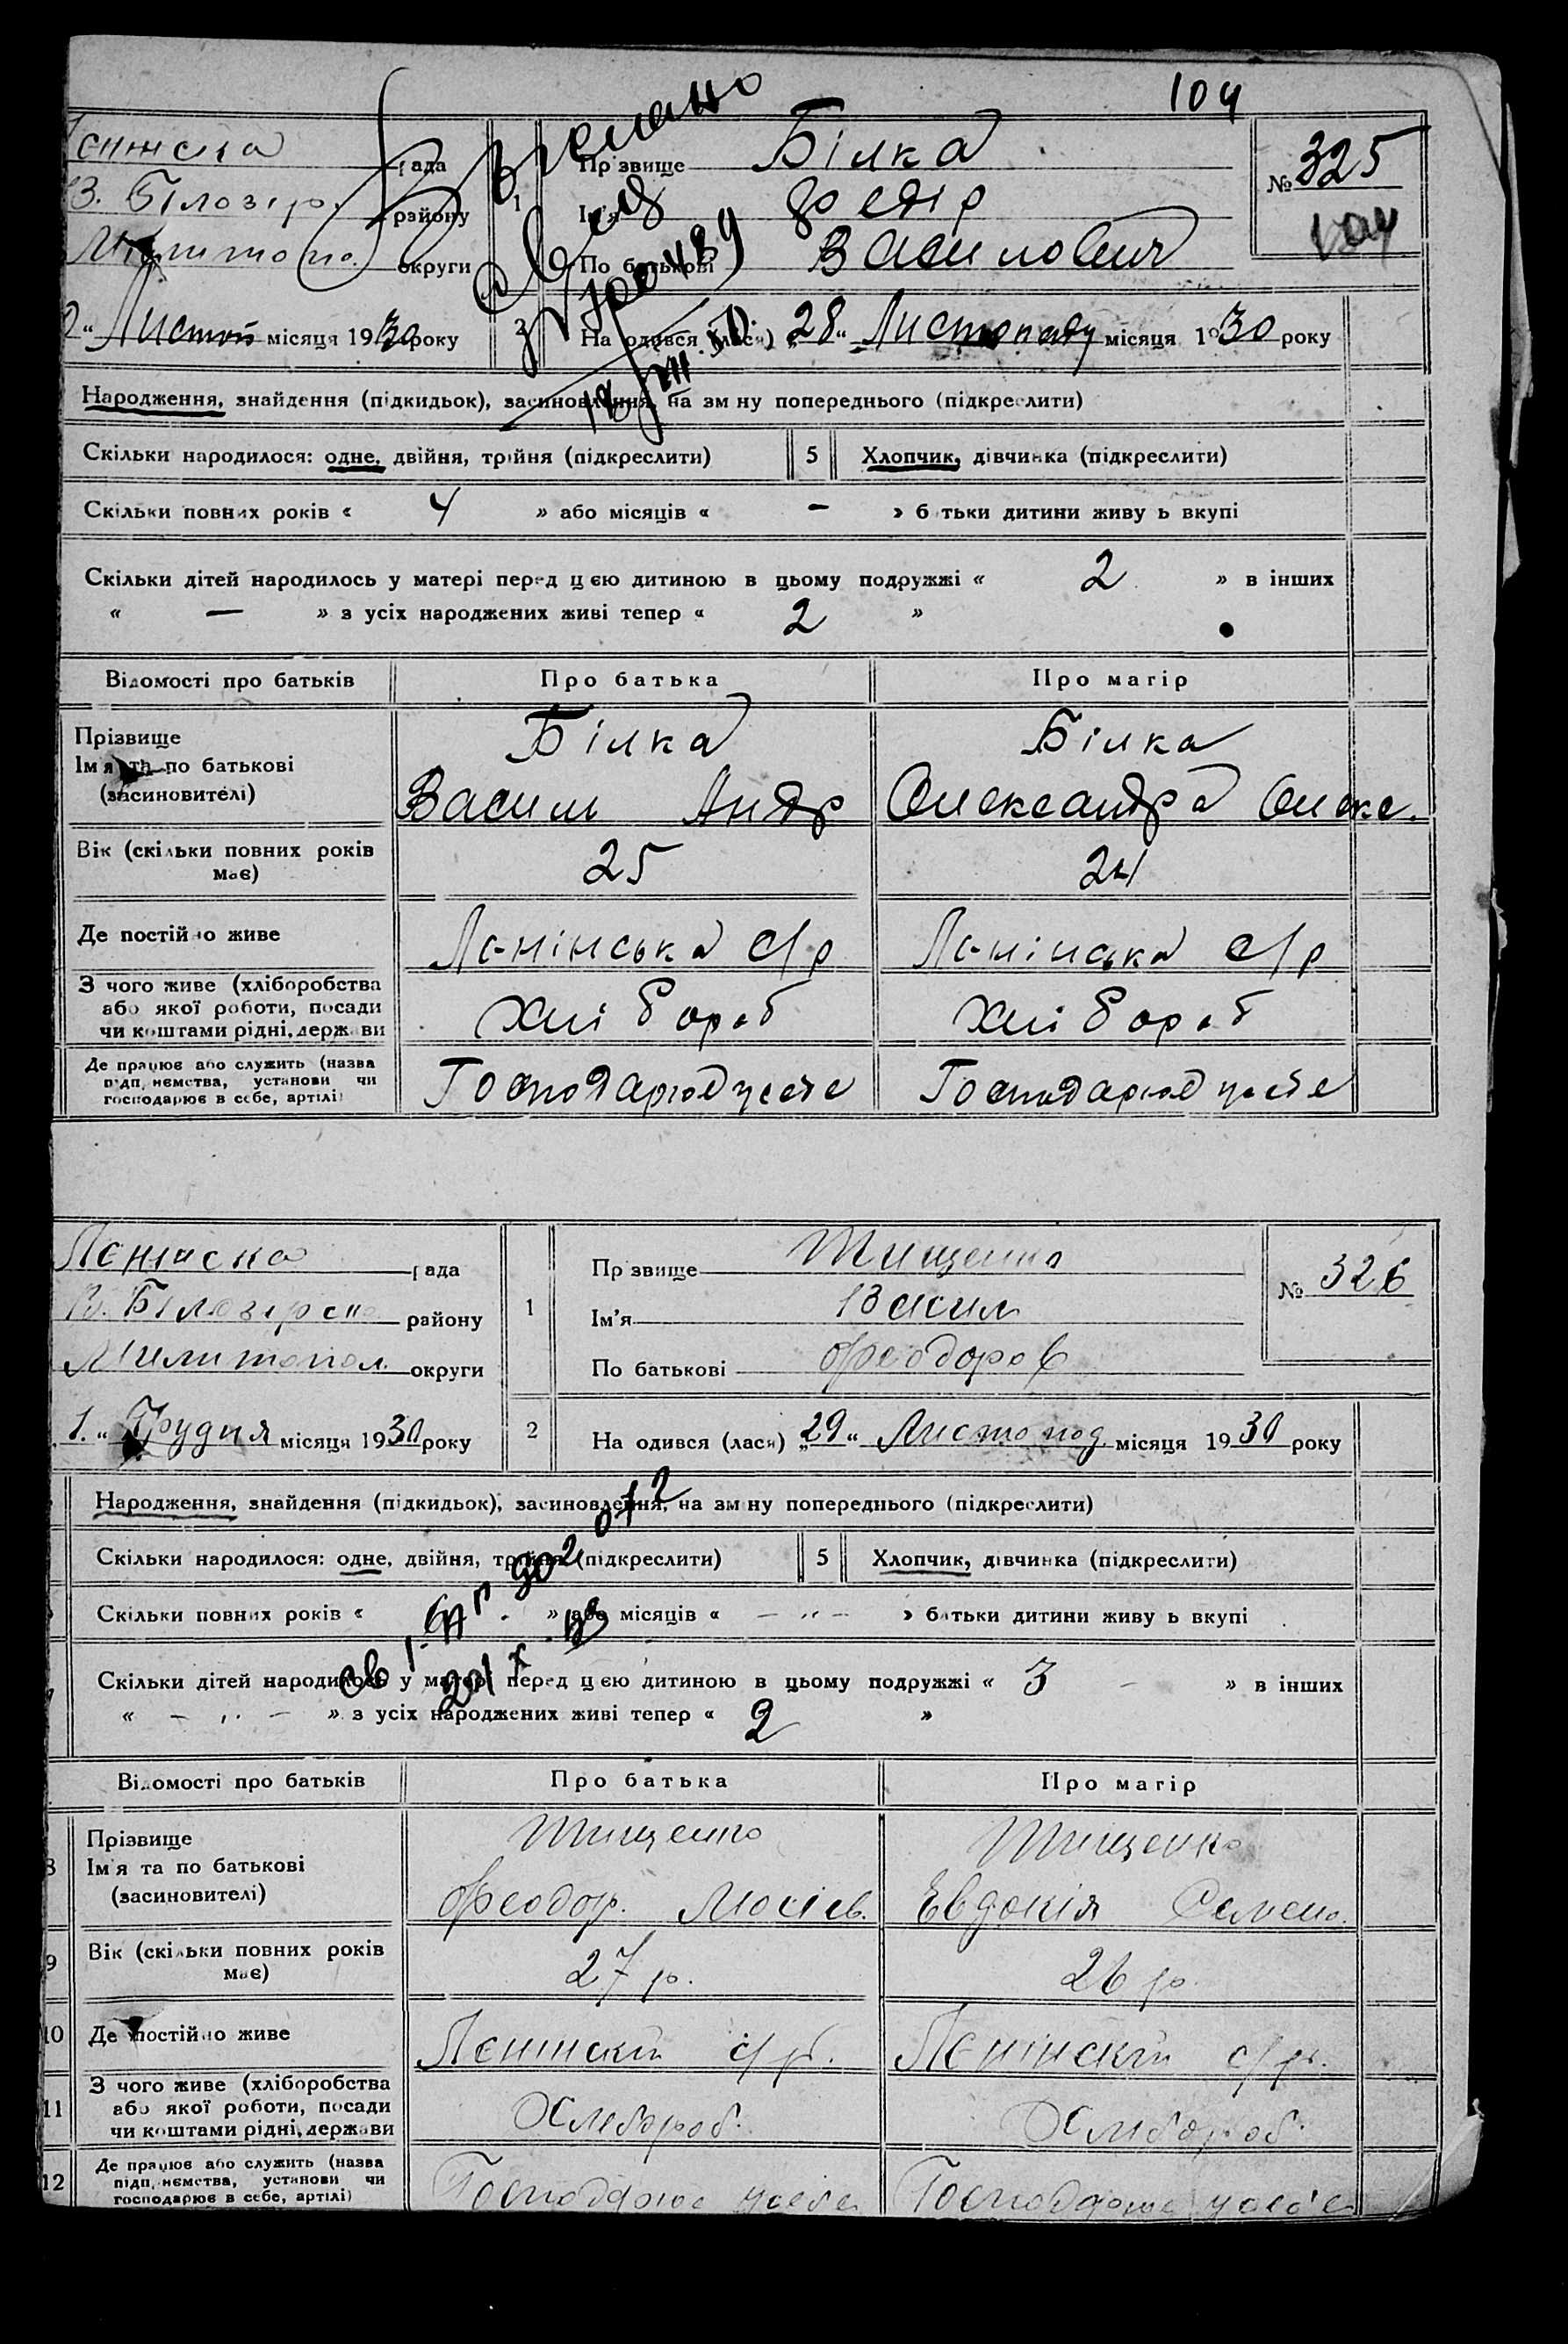 104
рада
З. Білозір. району
округи
1
Прізвище Білка
Ім'я Федір
По батькові Василович
№ 325
104
Листоп місяця 1930 року
На одився (лася) „28“ Листопаду місяця 1930 року
Народження, знайдення (підкидьок), засиновлення, на зм ну попереднього (підкреслити)
Скільки народилося: одне, двійня, трійня (підкреслити) 5 Хлопчик, дівчинка (підкреслити)
Скільки повних років « 4 » або місяців « – » батьки дитини живу ь вкупі
Скільки дітей народилось у матері перед цією дитиною в цьому подружжі « 2 » в інших
« — » з усіх народжених живі тепер « 2 »
Відомості про батьків Про батька Про матір
Прізвище Білка Білка
Ім'я та по батькові
(засиновителі) Василь Андр Олександра Олекс.
Вік (скільки повних років має) 25 24
Де постійно живе Ленінська с/р Ленінська с/р
З чого живе (хліборобства
або якої роботи, посади Хлібороб Хлібороб
чи коштами рідні, держави
Де працює або служить (назва
підп, немства, установи чи Господарює у себе Господарює у себе
господарює в себе, артілі)
Ленінска рада
В. Білозірск району
Милитопол. округи
1
Прізвище Тищенко
Ім'я Васил
По батькові Феодоров
№ 326
1. “ Грудня місяця 1930 року
2
На одився (лася) „29“ Листопад місяця 1930 року
Народження, знайдення (підкидьок), засиновлення, на зм ну попереднього (підкреслити)
Скільки народилося: одне, двійня, трійня (підкреслити) 5 Хлопчик, дівчинка (підкреслити)
Скільки повних років « » або місяців « – „ – » батьки дитини живу ь вкупі
Скільки дітей народилось у матері перед цією дитиною в цьому подружжі « 3 – » в інших
« – „ – » з усіх народжених живі тепер « 2 »
Відомості про батьків Про батька Про матір
8 Прізвище Тищенко Тищенко
Ім'я та по батькові
(засиновителі) Феодор. Мосієв. Евдокія Семено.
9 Вік (скільки повних років має) 27 р. 26 р.
10 Де постійно живе Ленінскій с/р. Ленінскій с/р.
11 З чого живе (хліборобства
або якої роботи, посади Хлібороб. Хлібороб.
чи коштами рідні, держави
12 Де працює або служить (назва
підп, немства, установи чи Господарює у себе Господарює у себе
господарює в себе, артілі)